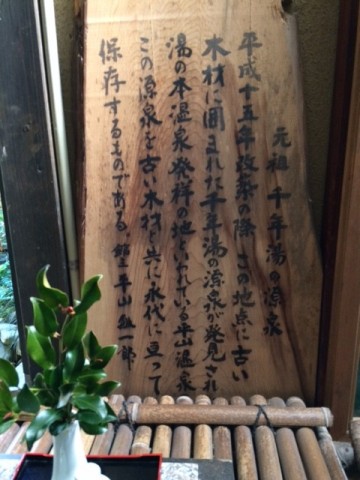 元祖 千年湯の源泉
平成十五年改築の際 この地点に古い
木材に囲まれた千年湯の源泉が発見され
湯の本温泉発祥の地といわれている平山温泉
この源泉を古い木材と共に永代に亘って
保存するものである。 館主 平山 一郎